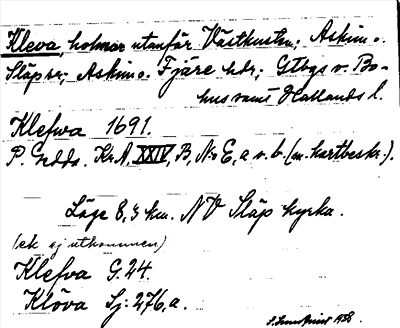 Kleva, holmar utanför Västkusten; Askim o.
Släp sr; Askim o. Fjäre hdr; Gtbgs o. Bo-
hus samt Hallands l.
Klefwa 1691.
P. Gedda. KrA, XXIV, B, N:o E, a o. b. (m. kartbeskr.).
Läge 8,5 km. NV Släp kyrka.
(ek ej utkommen)
Klefva G. 24.
Klöva Sj: 276, a.
1938